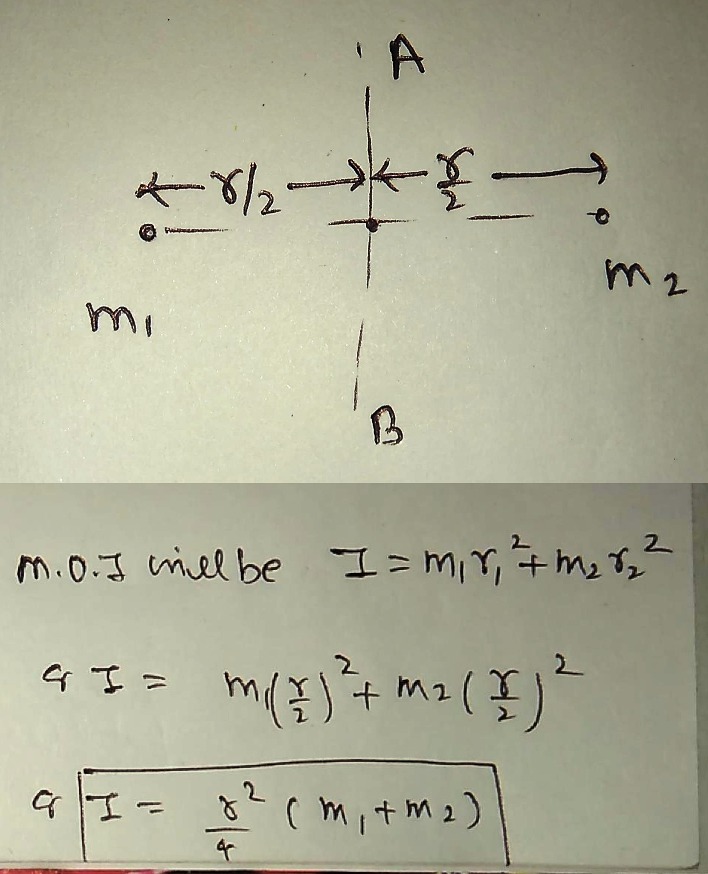 A
r/2 r/2
m1 m2
B
M.O.I will be I = m₁r₁² + m₂r₂²
I = m₁(r/2)² + m2(r/2)²
I = r²/4 (m₁ + m2)